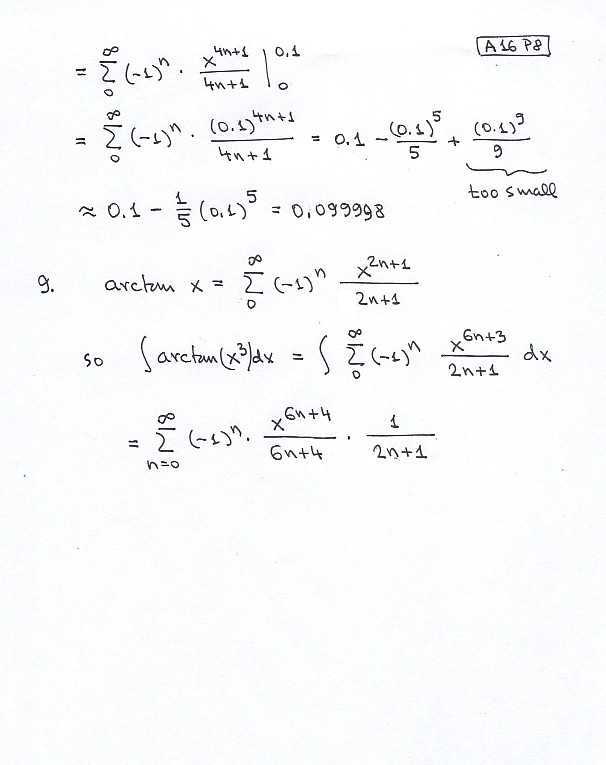 A16 P8
= ∑_0^∞ (-1)^n · x^{4n+1}/(4n+1) |_0^{0.1}
= ∑_0^∞ (-1)^n · (0.1)^{4n+1}/(4n+1) = 0.1 - (0.1)^5/5 + (0.1)^9/9
too small
≈ 0.1 - 1/5 (0.1)^5 = 0,099998
9. arctan x = ∑_0^∞ (-1)^n x^{2n+1}/(2n+1)
so ∫ arctan(x^3)dx = ∫ ∑_0^∞ (-1)^n x^{6n+3}/(2n+1) dx
= ∑_{n=0}^∞ (-1)^n · x^{6n+4}/(6n+4) · 1/(2n+1)